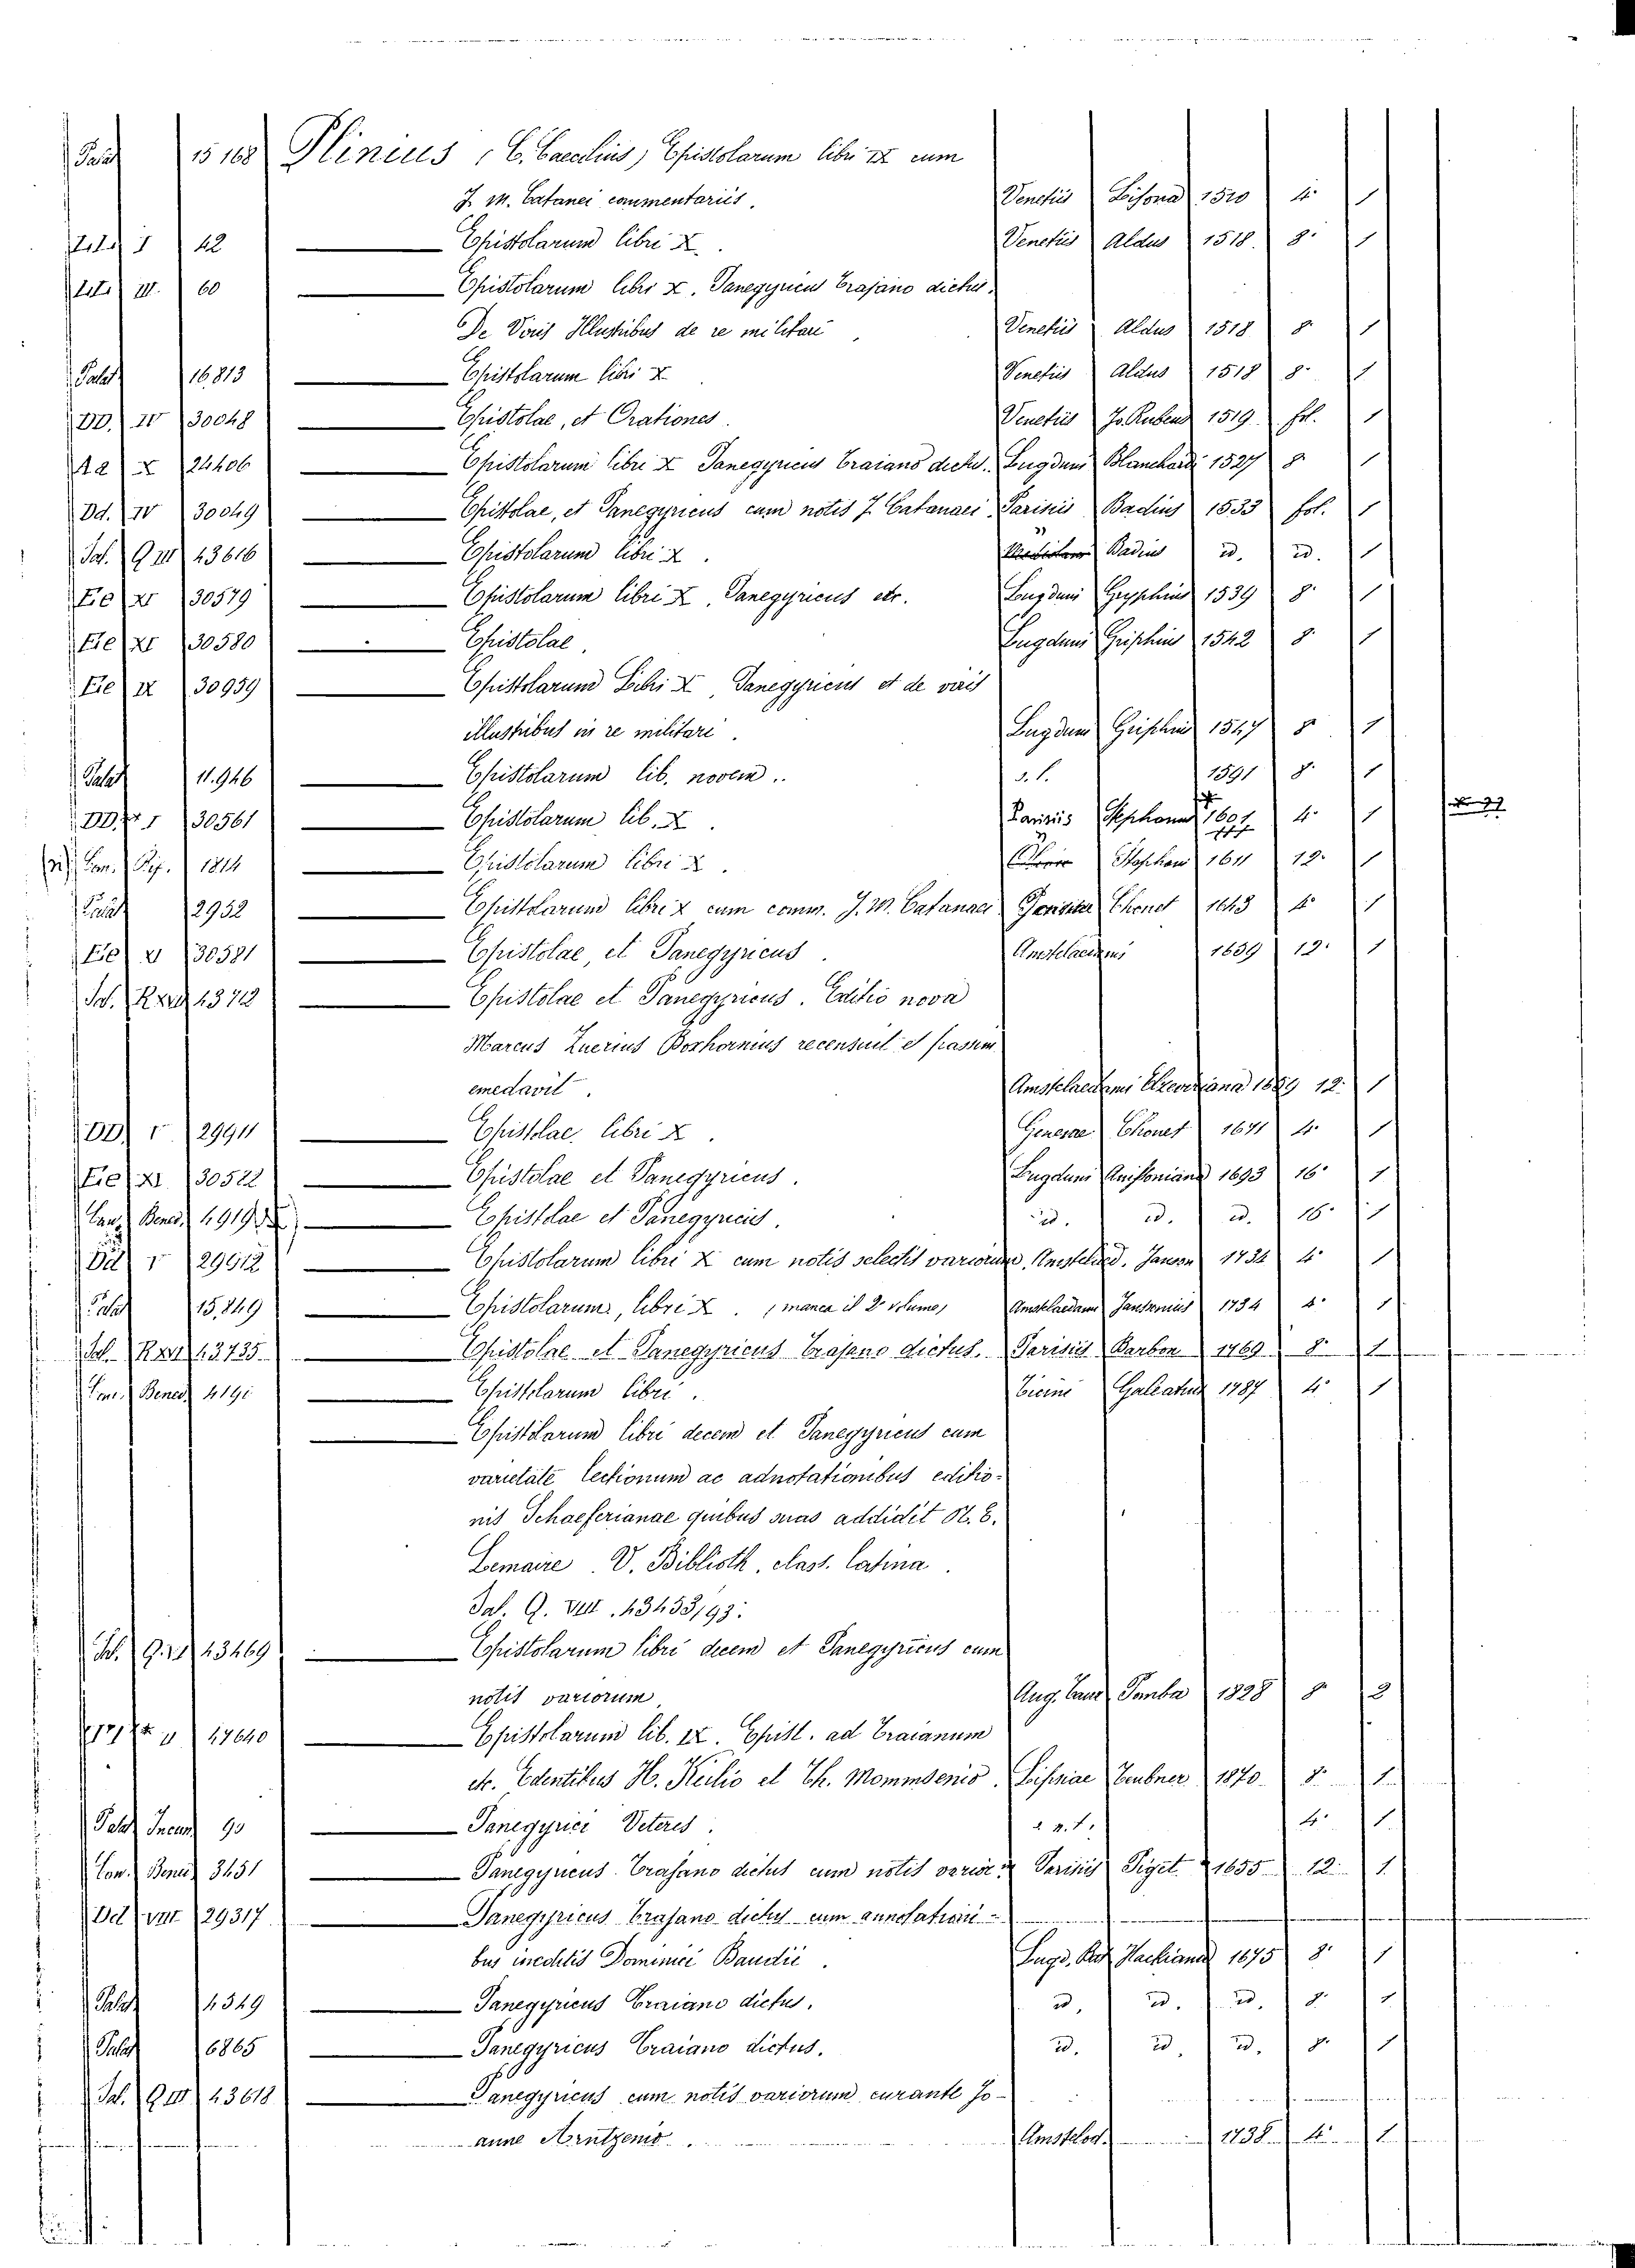 Palat 15168 Plinius, C. Caecilius, Epistolarum libri IX cum
J. M. Catanei commentariis. Venetiis 1510 4. 1
42 Epistolarum libri X. Venetiis Aldus 1518. 8. 1
60 Epistolarum libri X. Panegyricus Trajano dictus.
De Viris Illustribus de re militari Venetiis Aldus 1518 8. 1
Palat 16813 Epistolarum libri X Venetiis Aldus 1518 8. 1
DD. IV 30048 Epistolae, et Orationes. Venetiis Jo. Rubens 1519. fol. 1
Aa X 24406 Epistolarum libri X Panegyricus Traiano dictus. Lugduni Blanchardi 1527 8. 1
Dd. IV 30049 Epistolae, et Panegyricus cum notis J. Catanaei Parisiis Badius 1533 fol. 1
Sal. Q III 43616 Epistolarum libri X. Badius id. id. 1
Ee XI 30579 Epistolarum libri X, Panegyricus etc. Lugduni Gryphius 1539 8. 1
Ee XI 30580 Epistolae. Lugduni Griphius 1542 8. 1
Ee IX 30939 Epistolarum Libri X, Panegyricus et de viris
illustribus in re militari. Lugduni Griphius 1547 8. 1
Palat 11.946 Epistolarum lib. novem.. s. l. 1591 8. 1
30561 Epistolarum lib. X. Parisiis 4. 1
1814 Epistolarum libri X. Stephani 1611 12. 1
Palat 2932 Epistolarum libri X cum comm. J. M. Catanaei Chouet 1643 4. 1
Ee XI 30581 Epistolae, et Panegyricus. Amstelaedami 1659 12. 1
Sal. Epistolae et Panegyricus. Editio nova
Marcus Zuerius Boxhornius recensuit et passim
emedavit. Amstelaedami Elzeviriana 12. 1
DD V 29911 Epistolae libri X. Genevae Chouet 1671 4. 1
Ee XI. 30522 Epistolae et Panegyricus. Lugduni Anissoniana 1693 16. 1
Bened. 4919 Epistolae et Panegyricus. id. id. id. 16. 1
Dd V 29912 Epistolarum libri X cum notis selectis variorum. Amstelaed. Janson 1734 4. 1
Palat 15.249 Epistolarum, libri X. (manca il 2° volume) Amstelaedami Jansonius 1734 4. 1
Sal. 43735 Epistolae et Panegyricus Trajano dictus. Parisiis Barbon 1769 8. 1
Bened 4191 Epistolarum libri. Ticini Galeatius 1787 4. 1
Epistolarum libri decem et Panegyricus cum
varietate lectionum ac adnotationibus editio-
nis Schaeferianae quibus suas addidit N. E.
Lemaire. V. Biblioth. class. latina.
Sal. Q. VIII. 43433/93.
Sal. 43469 Epistolarum libri decem et Panegyricus cum
notis variorum Aug. Taur. Pomba 1828 8. 2
17640 Epistolarum lib. IX. Epist. ad Traianum
etc. Edentibus H. Keilio et Th. Mommsenio. Lipsiae Teubner 1870. 8. 1
Palat Incun 90 Panegyrici Veteres. 4. 1
Bened 3451 Panegyricus Trajano dictus cum notis varior. Parisiis Piget 1655 12. 1
Dd VIII 29317 Panegyricus Trajano dictus cum annotationi-
bus ineditis Dominici Baudii. Lugd. Bat. Hackiana 1675 8. 1
Palat 4349 Panegyricus Traiano dictus. id. id. id. 8. 1
Palat 6865 Panegyricus Traiano dictus. id. id. id. 8. 1
Sal. Q III 43618 Panegyricus cum notis variorum curante Jo-
anne Arntzenio. Amstelod. 1738 4. 1